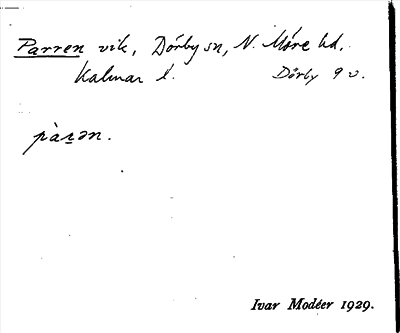 Parren vik, Dörby sn, N. Möre hd.
Kalmar l. Dörby 9 v.
pàrən.
Ivar Modéer 1929.